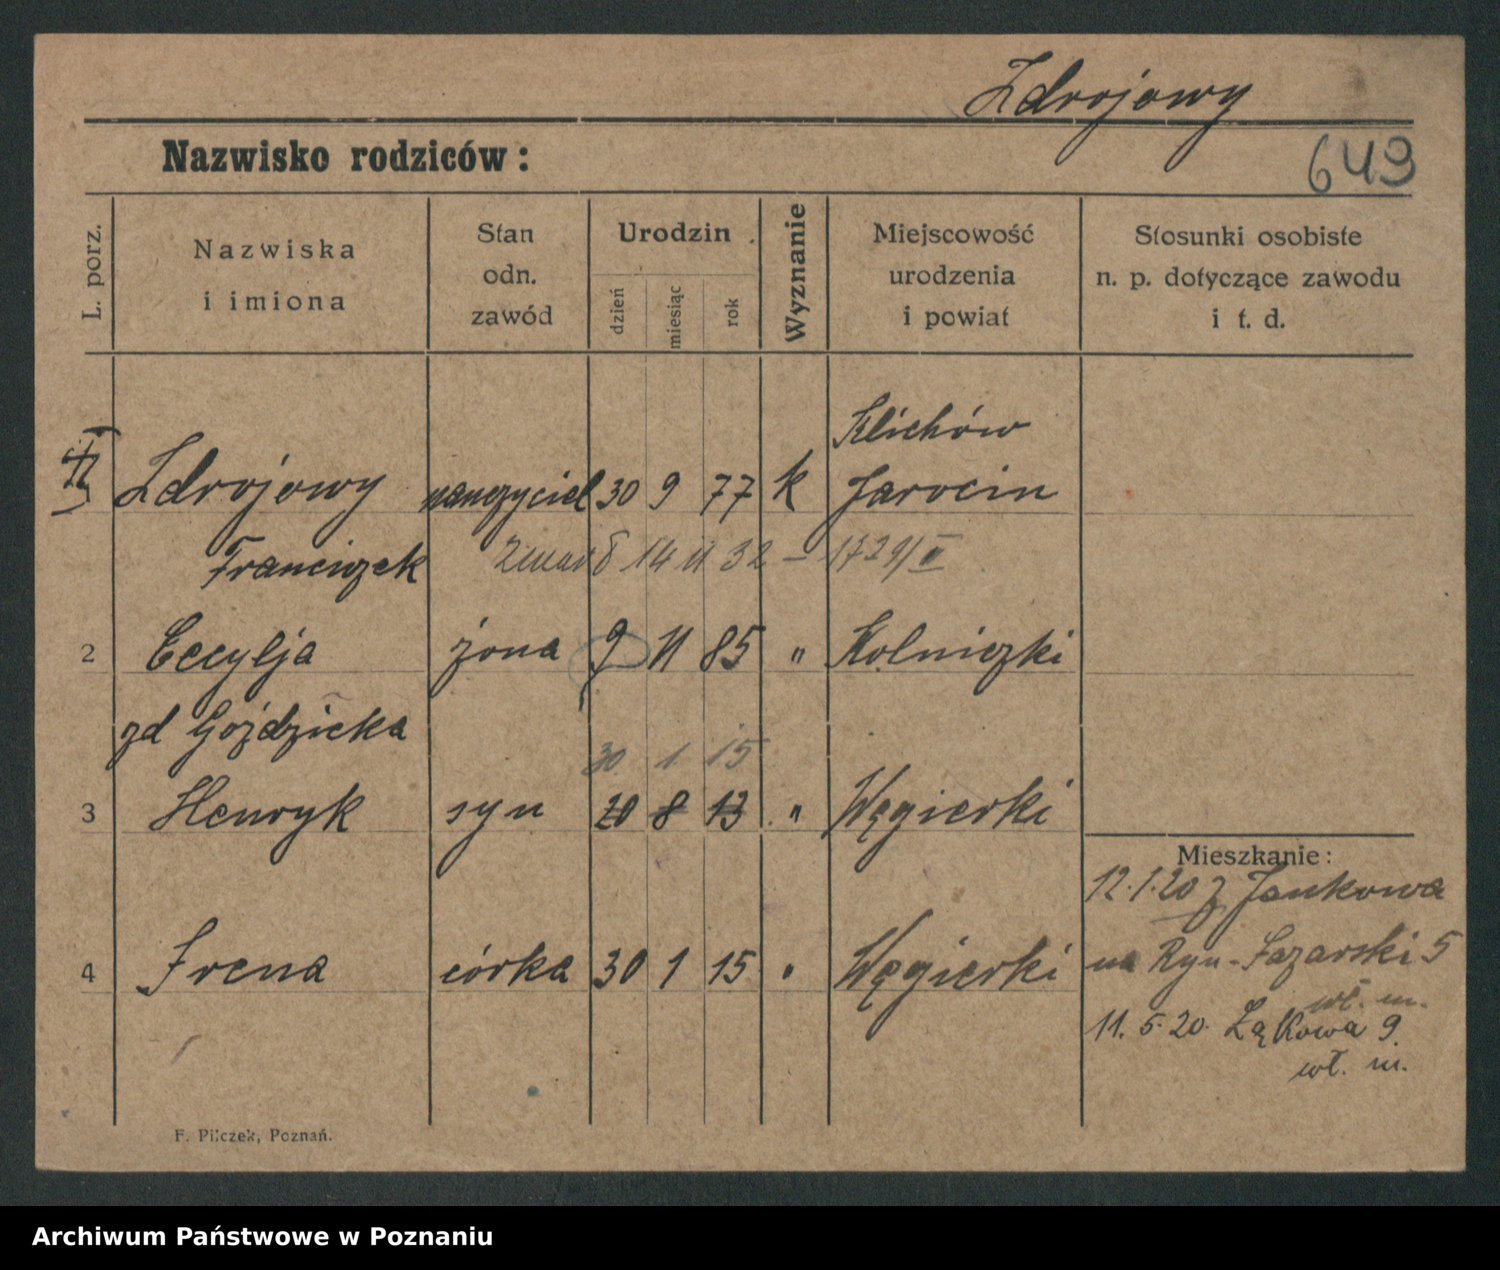 Zdrojowy
Nazwisko rodziców:
649
L. porz.
Nazwiska
i imiona
Stan
odn.
zawód
Urodzin
dzień
miesiąc
rok
Wyznanie
Miejscowość
urodzenia
i powiat
Stosunki osobiste
n. p. dotyczące zawodu
i t. d.
Klichów
Zdrojowy nauczyciel 30 9 77 k Jarocin
Franciszek
Zmarł 14 11 32 – 1729/II
2 Cecylja żona 9 11 85 " Kolniczki
zd Goździcka
30 1 15
3 Henryk syn 20 8 13 " Węgierki
4 Irena córka 30 1 15 " Węgierki
Mieszkanie:
12.1.20 z Jankowa
na Ryn-Łazarski 5
wł. m.
11. 5. 20. Łąkowa 9
wł. m.
F. Pilczek, Poznań.
Archiwum Państwowe w Poznaniu